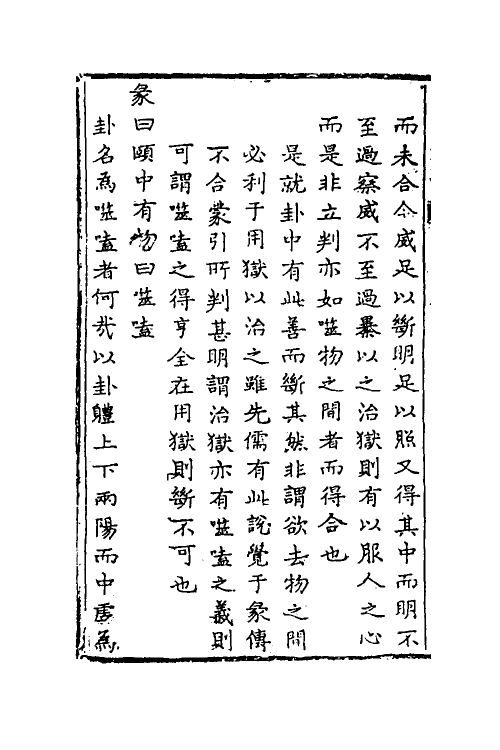 而未合今威足以斷明足以照又得其中而明不
至過察威不至過暴以之治獄則有以服人之心
而是非立判亦如噬物之間者而得合也
是就卦中有此善而斷其然非謂欲去物之間
必利于用獄以治之雖先儒有此說覺于彖傳
不合蒙引所判甚明謂治獄亦有噬嗑之義則
可謂噬嗑之得亨全在用獄則斷不可也
彖曰頤中有物曰噬嗑
卦名為噬嗑者何哉以卦體上下兩陽而中虛為